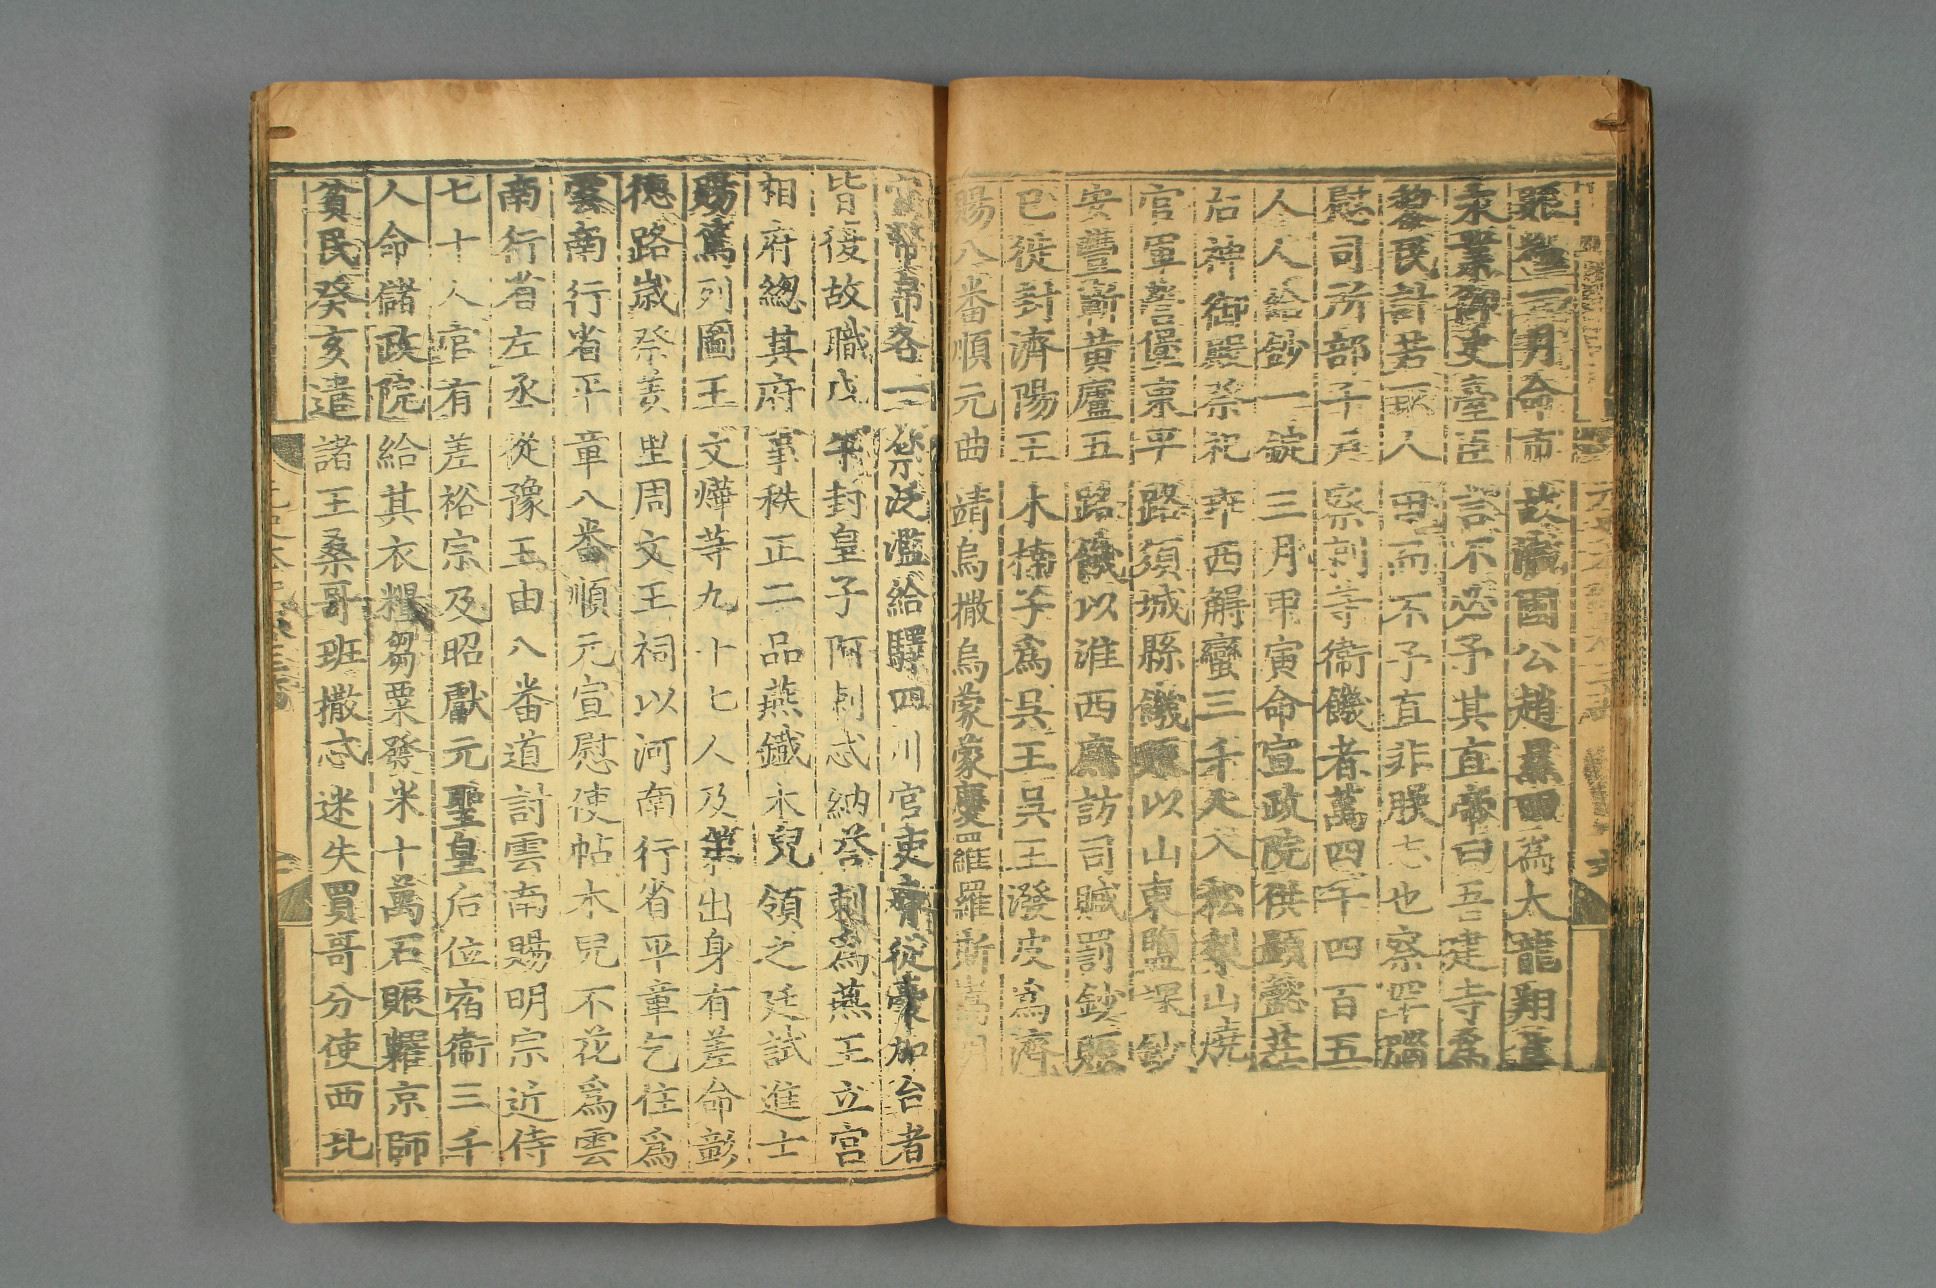 二月命市故瀛國公趙㬎田爲大龍翔
永業御史臺臣言不必予其直帝曰吾建寺爲
黎民計若取人田而不予直非朕志也察罕腦
慰司所部千戶察剌等衞饑者萬四千四百五
人人給鈔一錠三月甲寅命宣政院供顯懿莊
后神御殿祭祀奔西解蠻三千人入松梨山燒
官軍營堡東平路須城縣饑賑以山東鹽課鈔
安豐蘄黃廬五路饑以淮西廉訪司贓罰鈔賑
巳徙封濟陽王木楠子爲吳王吳王潑皮爲濟
賜八番順元曲靖烏撒烏蒙蒙慶羅羅斯嵩明
官幣帛各一禁泛濫給驛四川官吏脅從囊加台者
皆復故職戊午封皇子阿剌忒納荅剌爲燕王立宮
相府總其府事秩正二品燕鐵木兒領之廷試進士
賜篤列圖王文燁等九十七人及第出身有差命彰
德路歲祭羑里周文王祠以河南行省平章乞住爲
雲南行省平章八番順元宣慰使帖木兒不花爲雲
南行省左丞從豫王由八番道討雲南賜明宗近侍
七十人官有差裕宗及昭獻元聖皇后位宿衞三千
人命儲政院給其衣糧芻粟發米十萬石賑糶京師
貧民癸亥遣諸王桑哥班撒忒迷失買哥分使西北